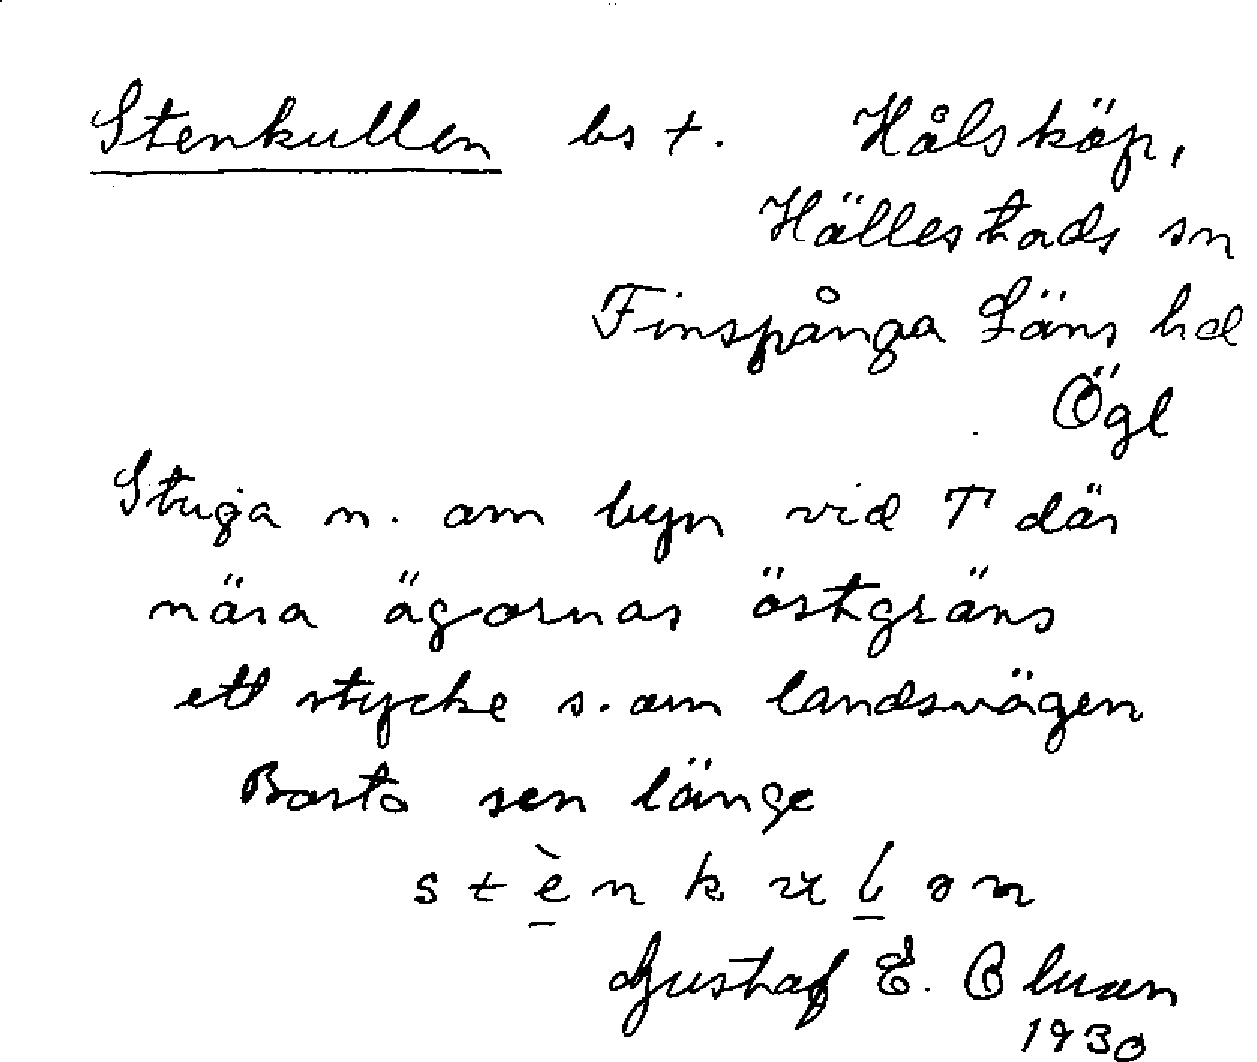 Stenkullen bs †. Hålsköp,
Hällestads sn
Finspånga Läns hd
Ögl
Stuga n. om byn vid T där
nära ägornas östgräns
ett stycke s. om landsvägen
Borta sen länge
stènkulən
Gustaf E.
1930